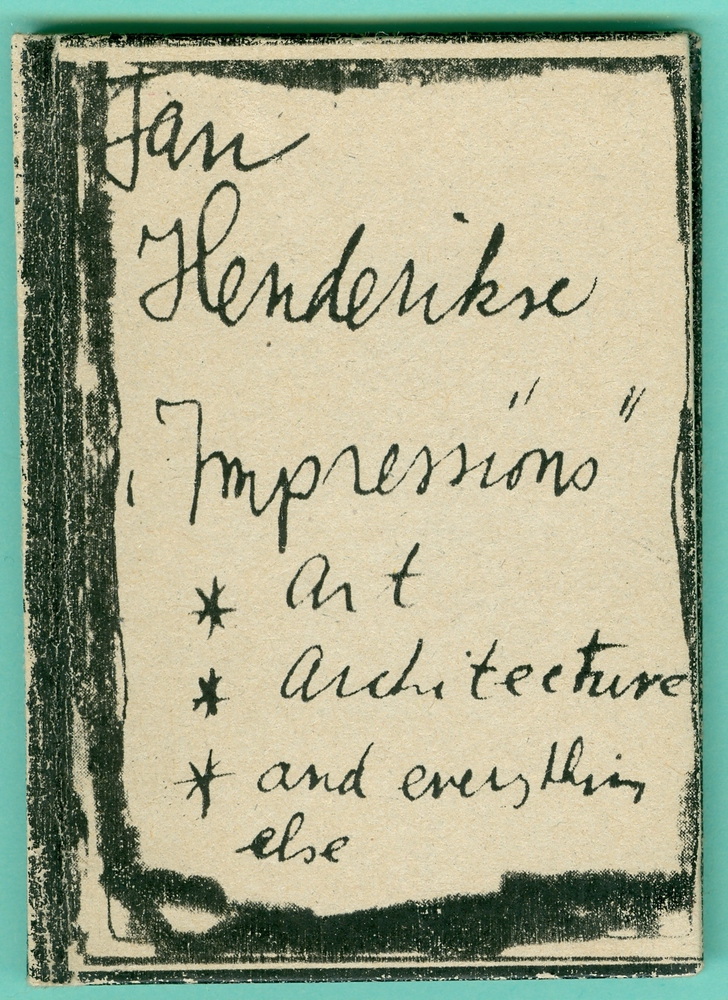 Jan
Henderikse
"Impressions"
* Art
* Architecture
* and everything
else